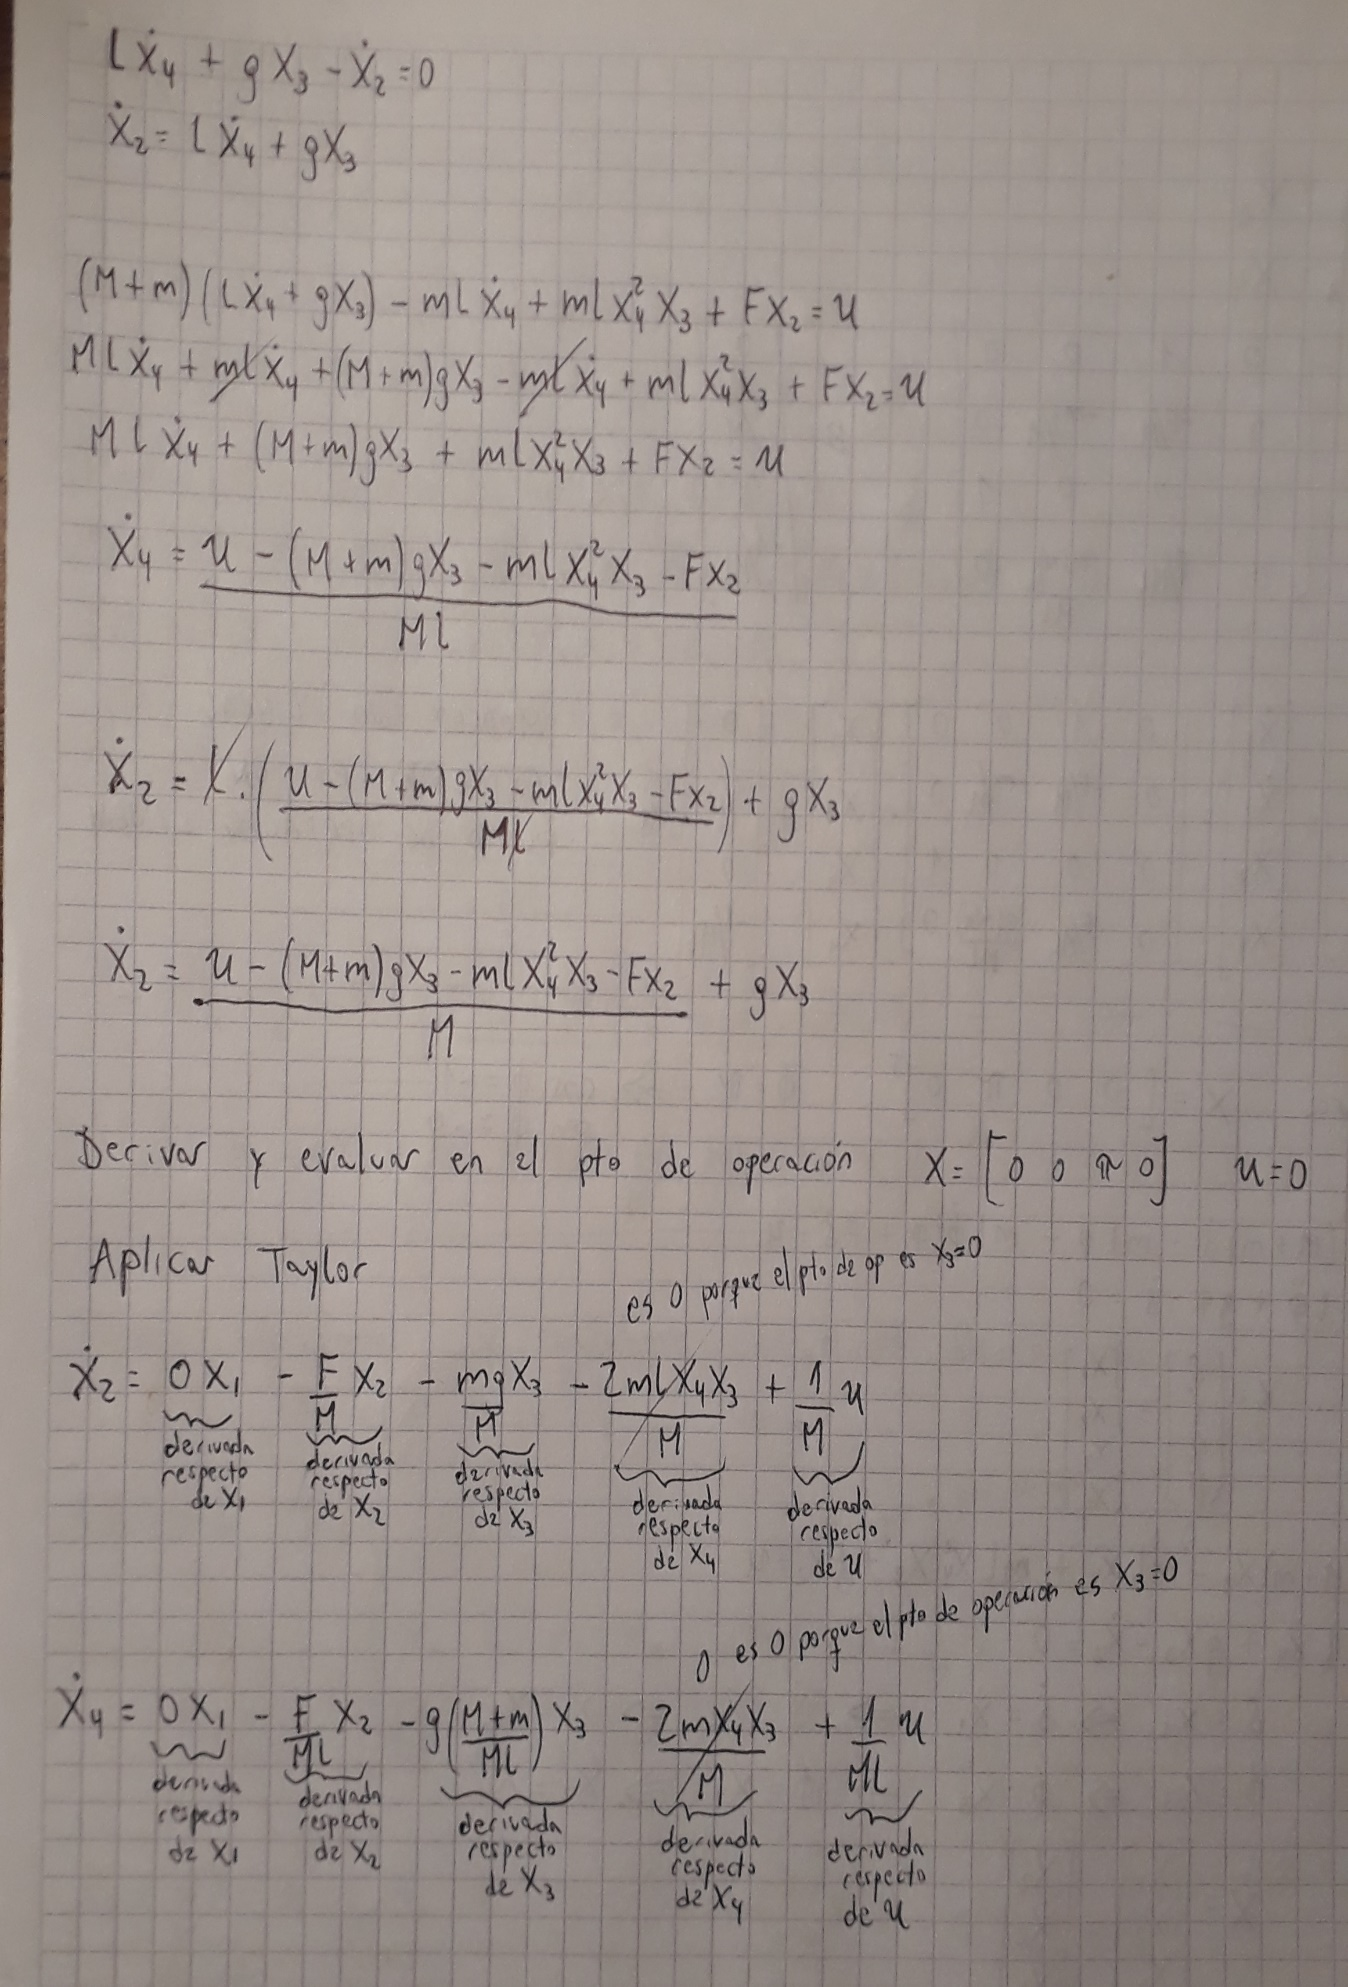 lẋ₄ + gX₃ - ẋ₂ = 0
ẋ₂ = lẋ₄ + gX₃
(M+m)(lẋ₄ + gX₃) - mlẋ₄ + mlX₄²X₃ + FX₂ = u
Mlẋ₄ + mlẋ₄ + (M+m)gX₃ - mlẋ₄ + mlX₄²X₃ + FX₂ = u
Mlẋ₄ + (M+m)gX₃ + mlX₄²X₃ + FX₂ = u
ẋ₄ = u - (M+m)gX₃ - mlX₄²X₃ - FX₂
Ml
ẋ₂ = l·(u - (M+m)gX₃ - mlX₄²X₃ - FX₂) + gX₃
Ml
ẋ₂ = u - (M+m)gX₃ - mlX₄²X₃ - FX₂ + gX₃
M
Derivar y evaluar en el pto de operación X = [0 0 π 0] u = 0
Aplicar Taylor
es 0 porque el pto de op es X₃=0
ẋ₂ = 0X₁ - F/M X₂ - mgX₃/M - 2mlX₄X₃/M + 1/M u
derivada respecto de X₁
derivada respecto de X₂
derivada respecto de X₃
derivada respecto de X₄
derivada respecto de u
0 es 0 porque el pto de operación es X₃=0
ẋ₄ = 0X₁ - F/Ml X₂ - g(M+m/Ml)X₃ - 2mX₄X₃/M + 1/Ml u
derivada respecto de X₁
derivada respecto de X₂
derivada respecto de X₃
derivada respecto de X₄
derivada respecto de u